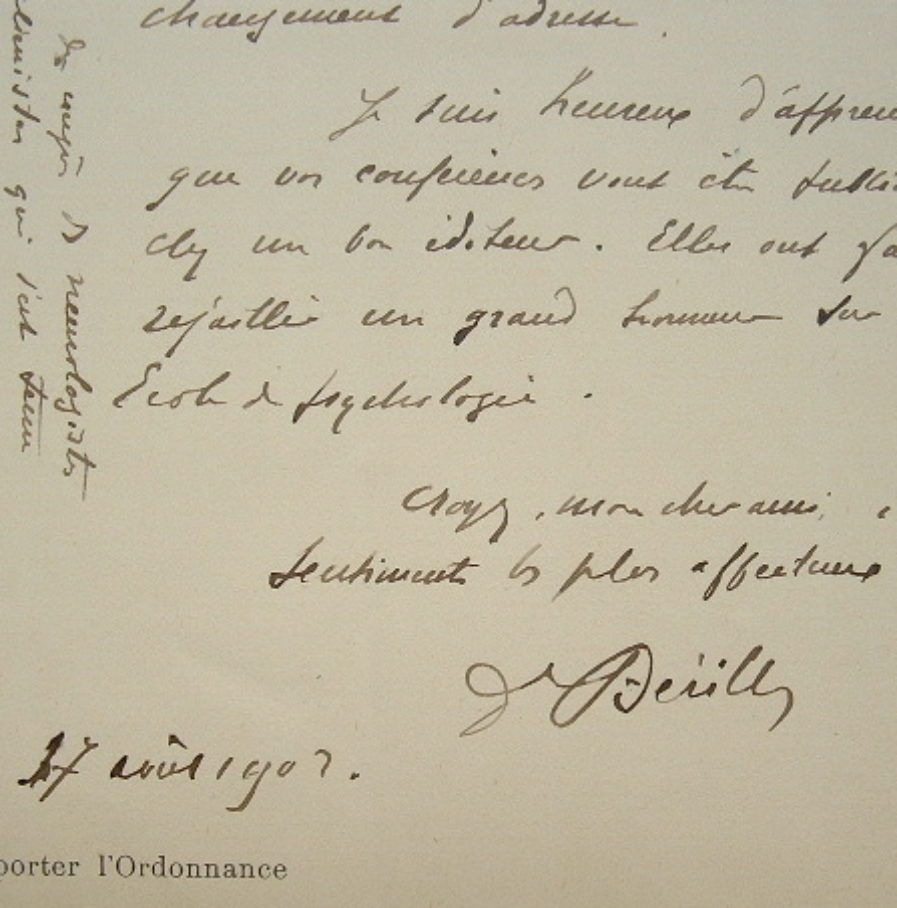 changement d'adresse.
Je suis heureux d'appren
que vos conférences vont être publi
chez un bon éditeur. Elles ont fa
rejaillir un grand honneur sur
Ecole de psychologie.
Croyez, mon cher ami,
sentiments les plus affectueux
Dr Bérillon
17 août 1907.
porter l'Ordonnance
du congrès de neurologistes
aliénistes qui s'est tenu